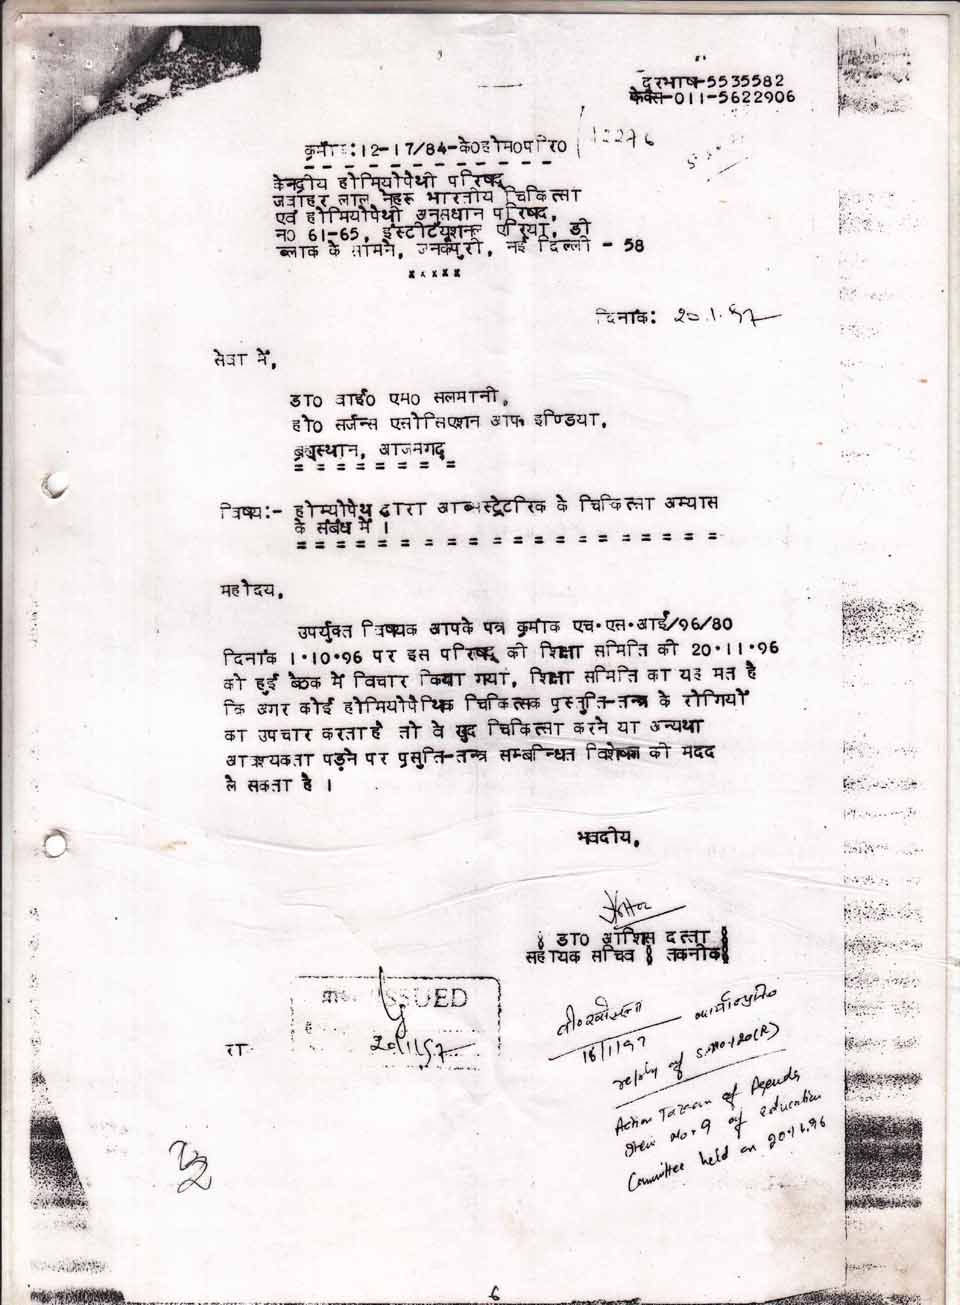 दूरभाष-5535582
फेक्स-011-5622906
क्रमांक:12-17/84-के0हो0प0रि0 12276
केन्द्रीय होमियोपैथी परिषद्
जवाहर लाल नेहरू भारतीय चिकित्सा
एवं होमियोपैथी अनुसंधान परिषद,
न0 61-65, इंस्टीट्यूशनल एरिया, डी
ब्लाक के सामने, जनकपुरी, नई दिल्ली - 58
*****
दिनांक: 20.1.97
सेवा में,
डा0 वाई0 एम0 सलमानी,
हो0 सर्जन्स एसोसिएशन आफ इण्डिया,
ब्रह्मस्थान, आजमगढ़
विषय:- होम्योपैथ द्वारा आब्सट्रेटरिक के चिकित्सा अभ्यास
के संबंध में ।
महोदय,
उपर्युक्त विषयक आपके पत्र क्रमांक एच.एस.आई/96/80
दिनांक 1.10.96 पर इस परिषद् की शिक्षा समिति की 20.11.96
को हुई बैठक में विचार किया गया, शिक्षा समिति का यह मत है
कि अगर कोई होमियोपैथिक चिकित्सक प्रसुति-तन्त्र के रोगियों
का उपचार करता है तो वे खुद चिकित्सा करने या अन्यथा
आवश्यकता पड़ने पर प्रसुति-तन्त्र सम्बन्धित विशेषज्ञ की मदद
ले सकता है ।
भवदीय,
डा0 आशिस दत्ता
सहायक सचिव तकनीक
ISSUED
20/1/97
रा
16/1/97
reply of S.No.120(R)
Action Taken of Agenda
Item No.9 of education
Committee held on 20.11.96
6